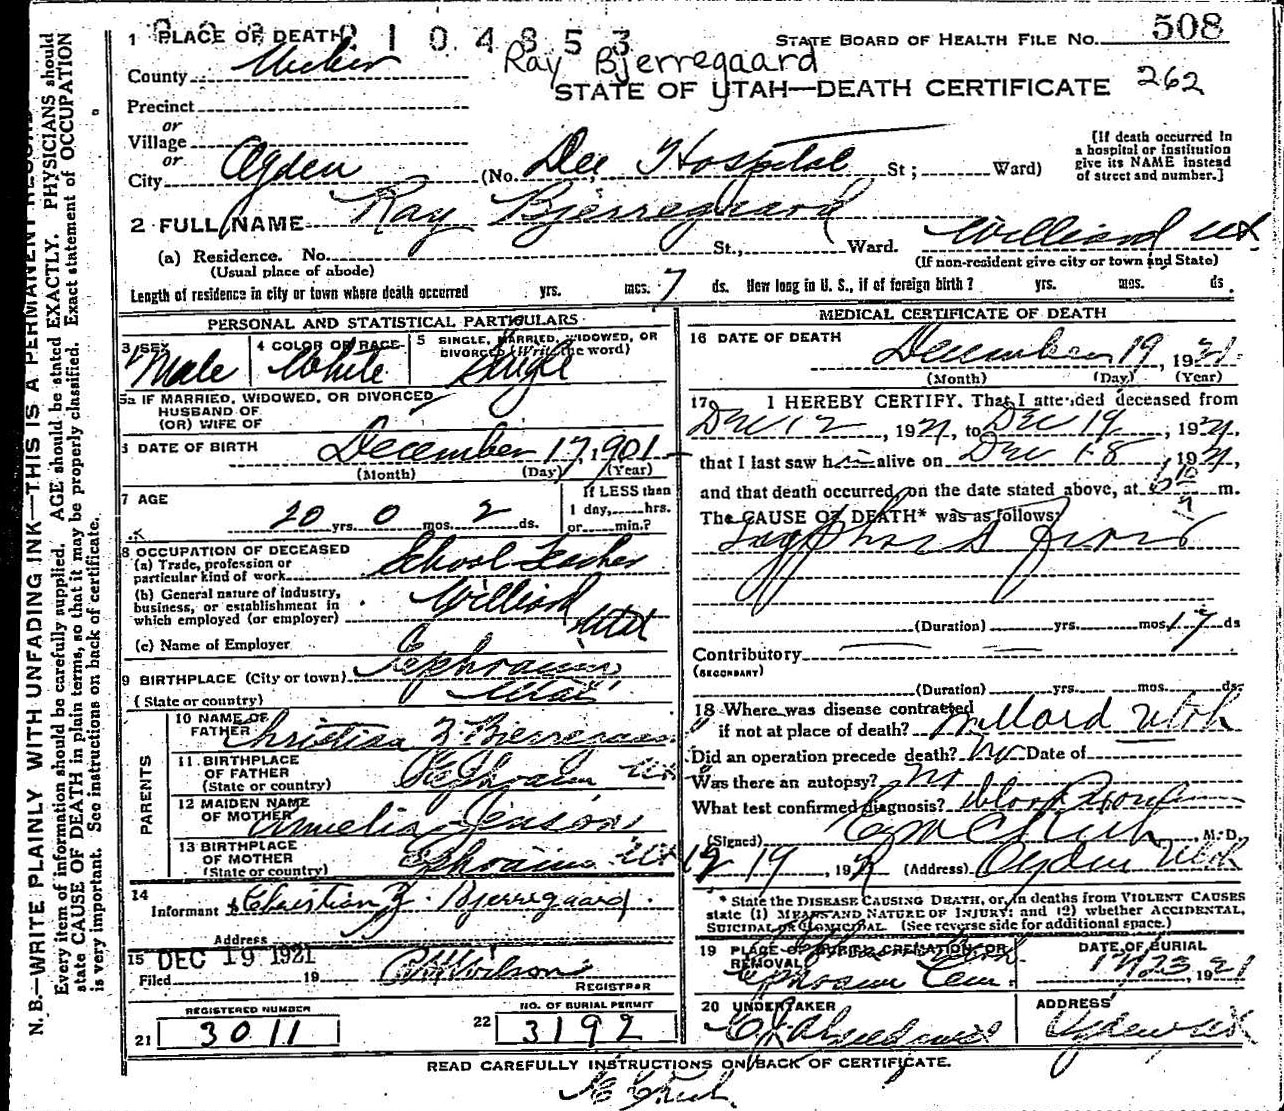 N. B.—WRITE PLAINLY WITH UNFADING INK—THIS IS A PERMANENT RECORD
Every item of information should be carefully supplied. AGE should be stated EXACTLY. PHYSICIANS should
state CAUSE OF DEATH in plain terms, so that it may be properly classified. Exact statement of OCCUPATION
is very important. See instructions on back of certificate.
STATE BOARD OF HEALTH FILE No. 508
1 PLACE OF DEATH 2104853
County Weber
Ray Bjerregaard
STATE OF UTAH—DEATH CERTIFICATE 262
Precinct
or
Village
or
City Ogden (No. Dee Hospital St; Ward)
[If death occurred in
a hospital or institution
give its NAME instead
of street and number.]
2 FULL NAME Ray Bjerregaard
(a) Residence. No. St., Ward. Willard Ut
(Usual place of abode) (If non-resident give city or town and State)
Length of residence in city or town where death occurred yrs. mos. 7 ds. How long in U. S., if of foreign birth? yrs. mos. ds.
PERSONAL AND STATISTICAL PARTICULARS
3 SEX Male
4 COLOR OR RACE White
5 SINGLE, MARRIED, WIDOWED, OR
DIVORCED (Write the word) Single
5a IF MARRIED, WIDOWED, OR DIVORCED
HUSBAND OF
(OR) WIFE OF
6 DATE OF BIRTH December 17, 1901
(Month) (Day) (Year)
7 AGE 20 yrs. 0 mos. 2 ds.
If LESS than
1 day, hrs.
or min.?
8 OCCUPATION OF DECEASED
(a) Trade, profession or
particular kind of work School Teacher
(b) General nature of industry,
business, or establishment in
which employed (or employer) Willard
Utah
(c) Name of Employer
9 BIRTHPLACE (City or town) Ephraim
(State or country) Utah
PARENTS
10 NAME OF
FATHER Christian Z Bjerregaard
11 BIRTHPLACE
OF FATHER
(State or country) Ephraim Ut
12 MAIDEN NAME
OF MOTHER Amelia Jenson
13 BIRTHPLACE
OF MOTHER
(State or country) Ephraim Ut
14
Informant Christian Z. Bjerregaard.
Address
15 DEC 19 1921
Filed 19 Wilson
REGISTRAR
REGISTERED NUMBER
21 3011
NO. OF BURIAL PERMIT
22 3192
MEDICAL CERTIFICATE OF DEATH
16 DATE OF DEATH December 19, 1921
(Month) (Day) (Year)
17 I HEREBY CERTIFY. That I attended deceased from
Dec 12, 1921, to Dec 19, 1921,
that I last saw him alive on Dec 18, 1921,
and that death occurred, on the date stated above, at m.
The CAUSE OF DEATH* was as follows:
Typhoid Fever
(Duration) yrs. mos. 17 ds
Contributory
(SECONDARY)
(Duration) yrs. mos. ds.
18 Where was disease contracted
if not at place of death? Willard Utah
Did an operation precede death? No Date of
Was there an autopsy? No
What test confirmed diagnosis? Blood
(Signed) M. D.
12 19, 192 (Address) Ogden Utah
* State the DISEASE CAUSING DEATH, or, in deaths from VIOLENT CAUSES
state (1) MEANS AND NATURE OF INJURY; and (2) whether ACCIDENTAL,
SUICIDAL or HOMICIDAL. (See reverse side for additional space.)
19 PLACE OF BURIAL CREMATION, OR
REMOVAL
Ephraim Cem.
DATE OF BURIAL
12/23, 1921
20 UNDERTAKER
ADDRESS
Ogden Ut
READ CAREFULLY INSTRUCTIONS ON BACK OF CERTIFICATE.